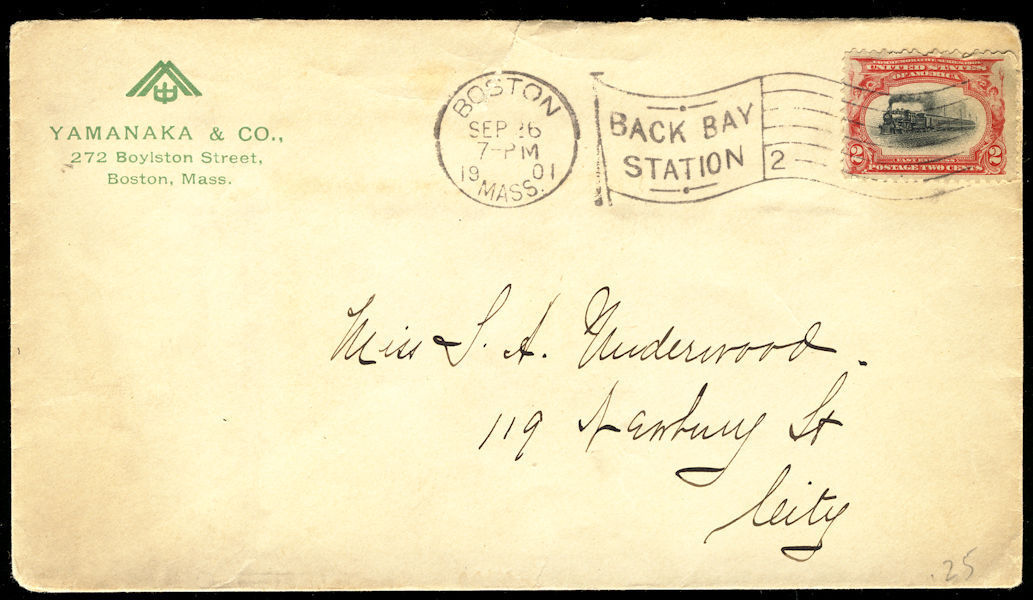 YAMANAKA & CO.,
272 Boylston Street,
Boston, Mass.
BOSTON
SEP 26
7-PM
19 01
MASS.
BACK BAY
STATION
2
COMMEMORATIVE SERIES 1901
UNITED STATES
OF AMERICA
FAST EXPRESS
2 2
POSTAGE TWO CENTS
Miss S. A. Underwood.
119 Newbury St
City
.25